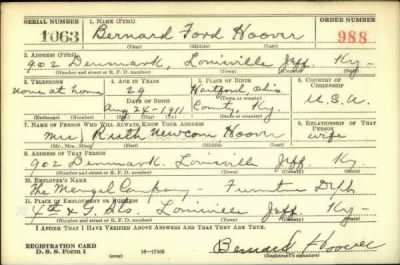 REGISTRATION CARD
SERIAL NUMBER 1. NAME (Print) ORDER NUMBER
1063 Bernard Ford Hoover 988
(First) (Middle) (Last)
2. ADDRESS (Print)
902 Denmark, Louisville Jeff. Ky-
(Number and street or R. F. D. number) (Town) (County) (State)
3. TELEPHONE 4. AGE IN YEARS 5. PLACE OF BIRTH 6. COUNTRY OF CITIZENSHIP
none at home 29 Hartford, Ohio
DATE OF BIRTH (Town or county)
Aug 24-1911 County, Ky. U.S.A.
(Exchange) (Number) (Mo.) (Day) (Yr.) (State or country)
7. NAME OF PERSON WHO WILL ALWAYS KNOW YOUR ADDRESS 8. RELATIONSHIP OF THAT PERSON
Mrs, Ruth Newcom Hoover wife
(Mr., Mrs., Miss) (First) (Middle) (Last)
9. ADDRESS OF THAT PERSON
902 Denmark. Louisville Jeff Ky.
(Number and street or R. F. D. number) (Town) (County) (State)
10. EMPLOYER'S NAME
The Mengel Company-
11. PLACE OF EMPLOYMENT OR BUSINESS
4th & G. Sts. Louisville Jeff. Ky-
(Number and street or R. F. D. number) (Town) (County) (State)
I AFFIRM THAT I HAVE VERIFIED ABOVE ANSWERS AND THAT THEY ARE TRUE.
REGISTRATION CARD
D. S. S. Form 1 (over) Bernard Hoover
(Registrant's signature)